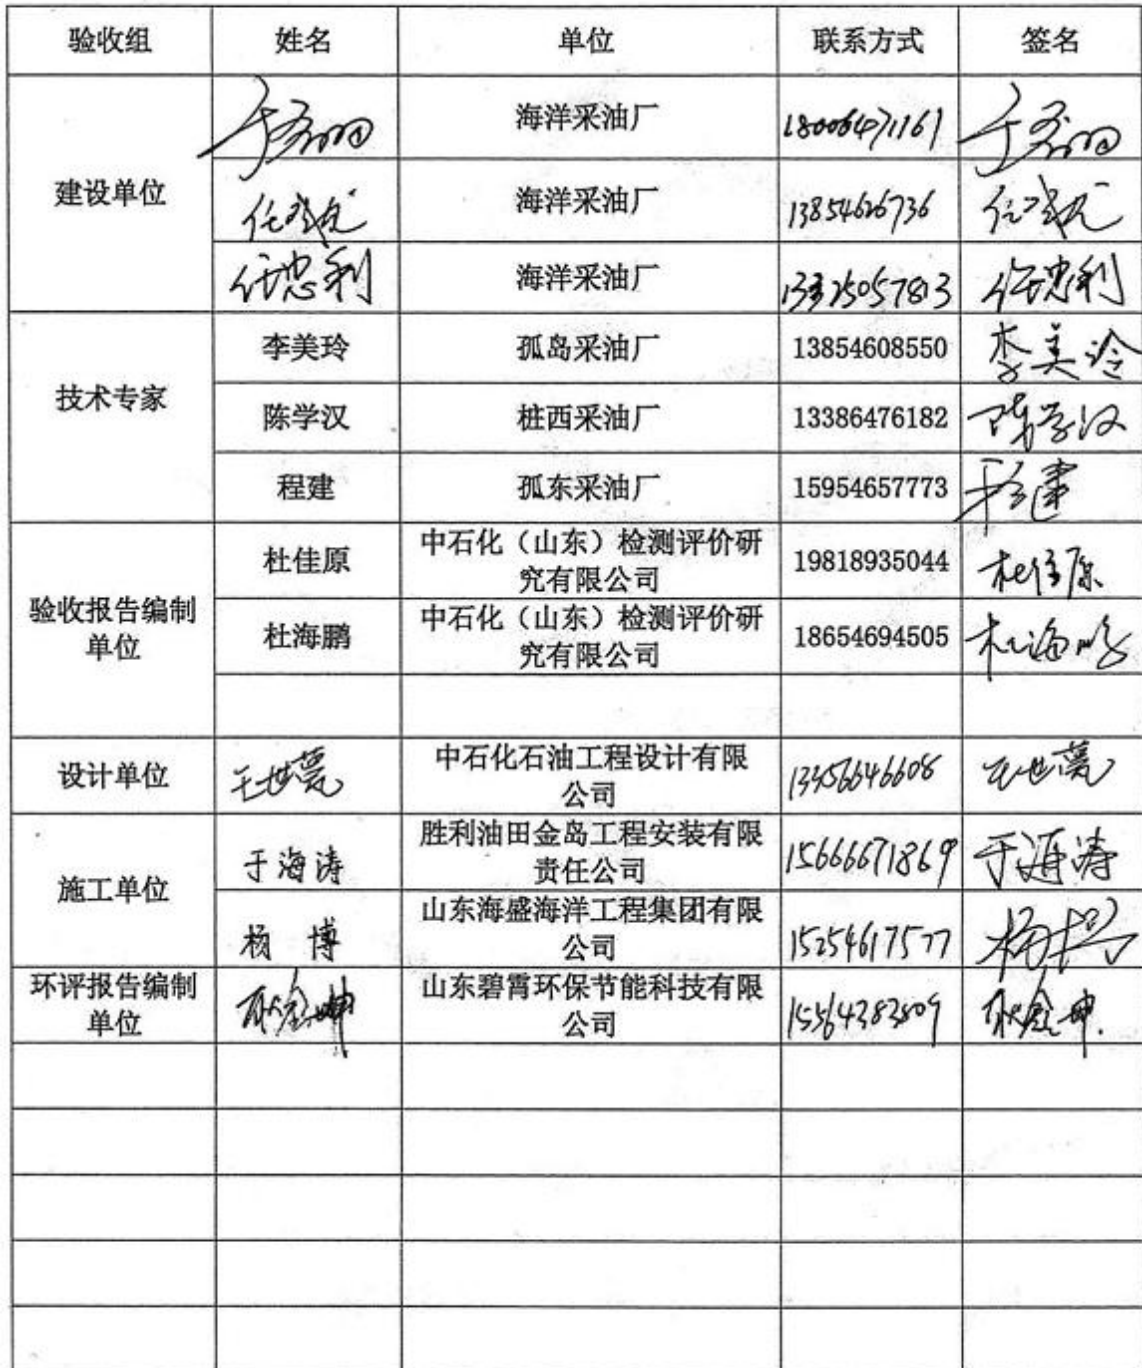 验收组 姓名 单位 联系方式 签名
海洋采油厂 18006471161
建设单位 海洋采油厂 13854626736
任忠利 海洋采油厂 任忠利
李美玲 孤岛采油厂 13854608550 李美玲
技术专家 陈学汉 桩西采油厂 13386476182 陈学汉
程建 孤东采油厂 15954657773 程建
杜佳原 中石化（山东）检测评价研
究有限公司 19818935044 杜佳原
验收报告编制
单位 杜海鹏 中石化（山东）检测评价研
究有限公司 18654694505 杜海鹏
设计单位 中石化石油工程设计有限
公司 13356646608
施工单位 于海涛 胜利油田金岛工程安装有限
责任公司 15666671869 于海涛
杨 博 山东海盛海洋工程集团有限
公司 15254617577 杨博
环评报告编制
单位 山东碧霄环保节能科技有限
公司 15564383809